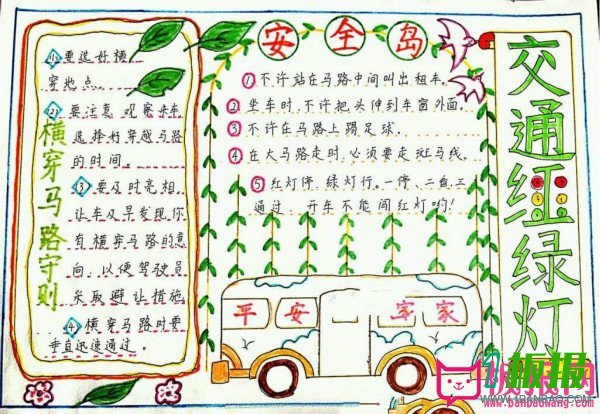 交通红绿灯
安全岛
①不许站在马路中间叫出租车.
②坐车时,不许把头伸到车窗外面.
③不许在马路上踢足球.
④在大马路走时,必须要走斑马线.
⑤红灯停,绿灯行。一停、二看、三
通过、开车不能闯红灯哟!
横穿马路守则
①要选好横
穿地点.
②要注意观察来车,
选择好穿越马路
的时间。
③要及时亮相,
让车及早发现,你
有横穿马路的意
向,以便驾驶员
采取避让措施.
④横穿马路时要
垂直迅速通过。
平安
家家
板报
WWW.1BANBAO.COM
www.banbaowang.com